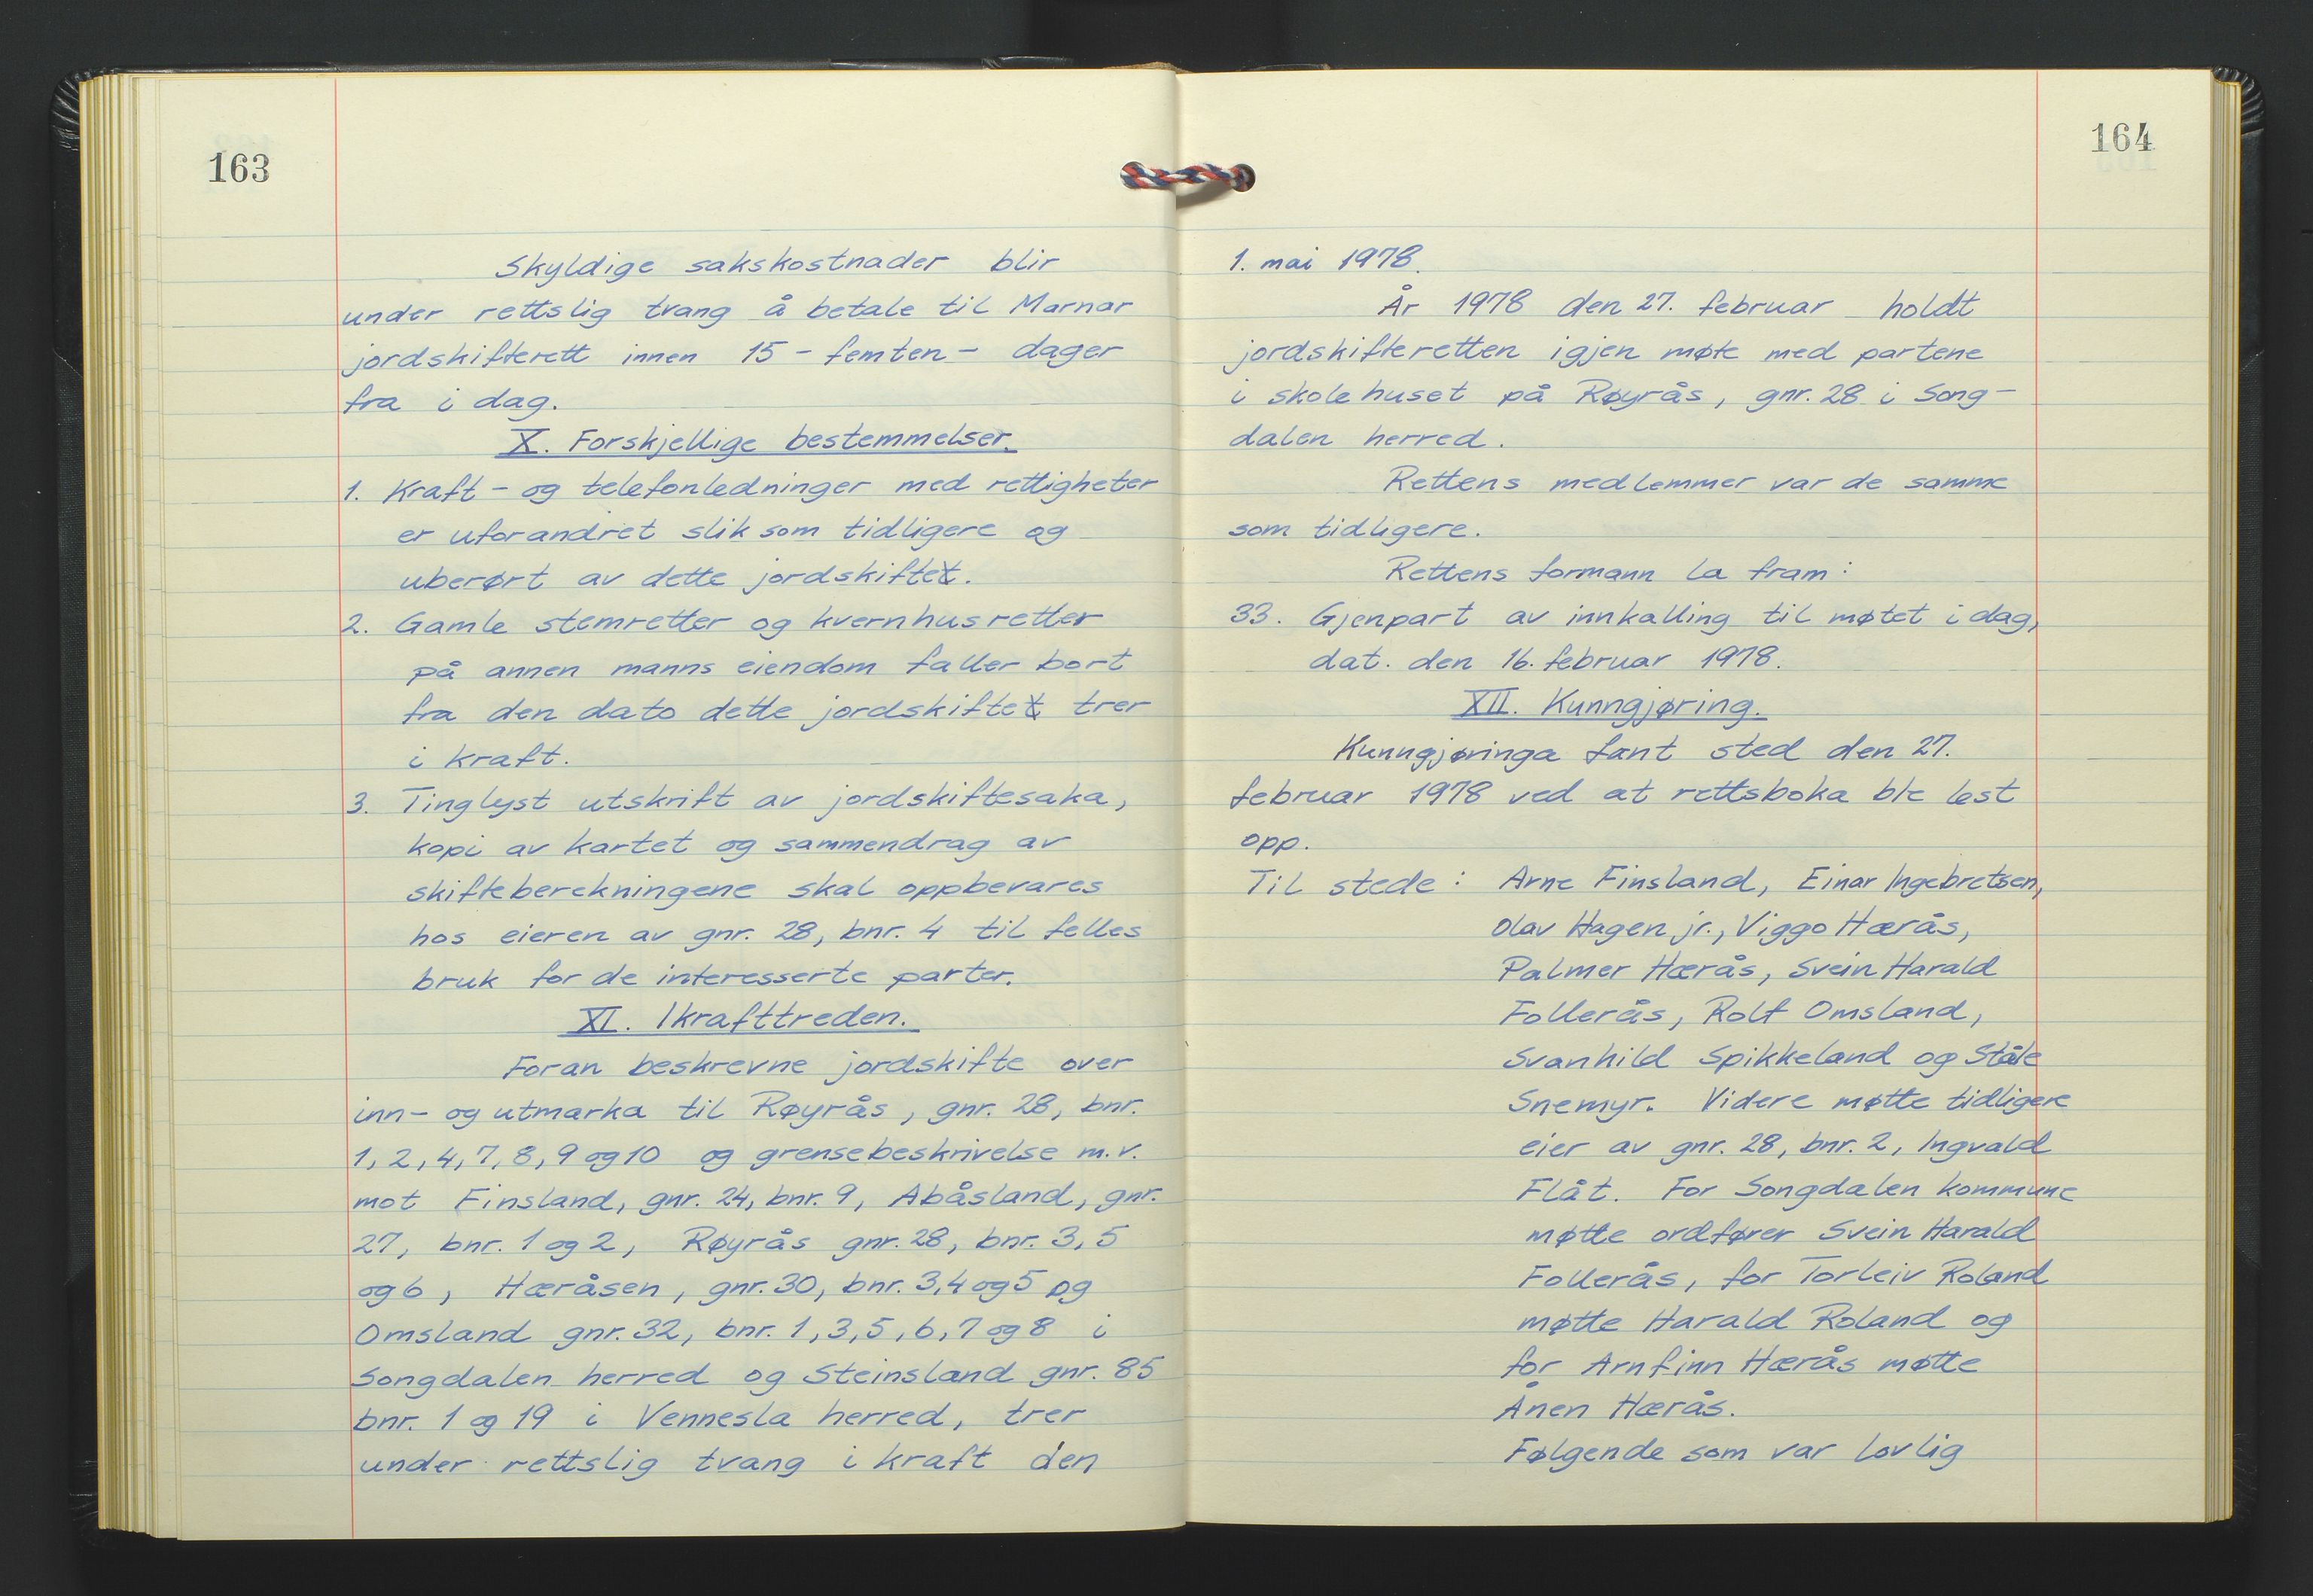 163
Skyldige sakskostnader blir
under rettslig tvang å betale til Marnar
jordskifterett innen 15 - femten - dager
fra i dag.
X. Forskjellige bestemmelser.
1. Kraft- og telefonledninger med rettigheter
er uforandret slik som tidligere og
uberørt av dette jordskiftet.
2. Gamle stemretter og kvernhusretter
på annen manns eiendom faller bort
fra den dato dette jordskiftet trer
i kraft.
3. Tinglyst utskrift av jordskiftesaka,
kopi av kartet og sammendrag av
skifteberekningene skal oppbevares
hos eieren av gnr. 28, bnr. 4 til felles
bruk for de interesserte parter.
XI. Ikrafttreden.
Foran beskrevne jordskifte over
inn- og utmarka til Røyrås, gnr. 28, bnr.
1, 2, 4, 7, 8, 9 og 10 og grensebeskrivelse m.v.
mot Finsland, gnr. 24, bnr. 9, Abåsland, gnr.
27, bnr. 1 og 2, Røyrås gnr. 28, bnr. 3, 5
og 6, Hæråsen, gnr. 30, bnr. 3, 4 og 5 og
Omsland gnr. 32, bnr. 1, 3, 5, 6, 7 og 8 i
Songdalen herred og Steinsland gnr. 85
bnr. 1 og 19 i Vennesla herred, trer
under rettslig tvang i kraft den
164
1. mai 1978.
År 1978 den 27. februar holdt
jordskifteretten igjen møte med partene
i skolehuset på Røyrås, gnr. 28 i Song-
dalen herred.
Rettens medlemmer var de samme
som tidligere.
Rettens formann la fram:
33. Gjenpart av innkalling til møtet i dag,
dat. den 16. februar 1978.
XII. Kunngjøring.
Kunngjøringa fant sted den 27.
februar 1978 ved at rettsboka ble lest
opp.
Til stede: Arne Finsland, Einar Ingebretsen,
Olav Hagen jr., Viggo Hærås,
Palmer Hærås, Svein Harald
Follerås, Rolf Omsland,
Svanhild Spikkeland og Ståle
Snemyr. Videre møtte tidligere
eier av gnr. 28, bnr. 2, Ingvald
Flåt. For Songdalen kommune
møtte ordfører Svein Harald
Follerås, for Torleiv Roland
møtte Harald Roland og
for Arnfinn Hærås møtte
Ånen Hærås.
Følgende som var lovlig